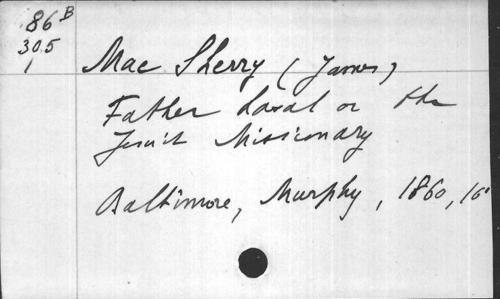 86 B
305
1
Mac Sherry (James)
Father Laval or the
Jesuit Missionary
Baltimore, Murphy, 1860, 16°